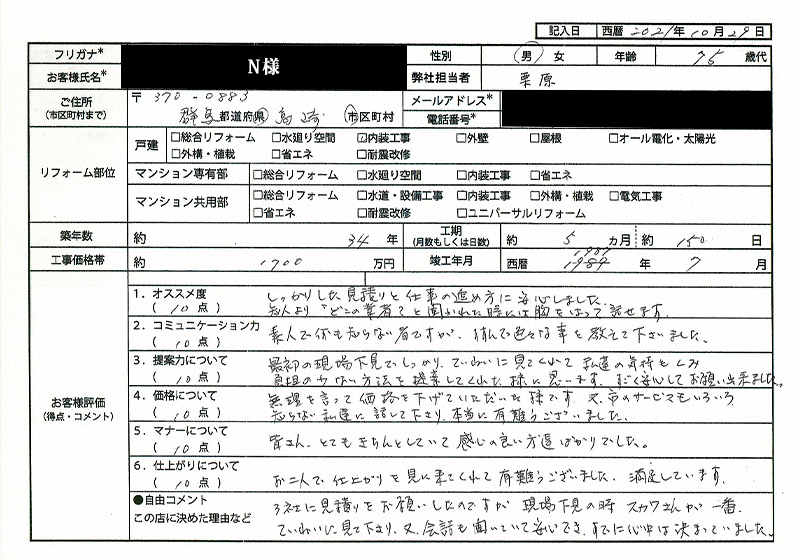 記入日 西暦 2021年10月29日
フリガナ* N様 性別 男 女 年齢 75 歳代
お客様氏名* 弊社担当者 栗原
ご住所 (市区町村まで) 〒370-0883 群馬 都道府県 高崎 市区町村 メールアドレス* 電話番号*
リフォーム部位
戸建 □総合リフォーム □水廻り空間 ☑内装工事 □外壁 □屋根 □オール電化・太陽光
□外構・植栽 □省エネ □耐震改修
マンション専有部 □総合リフォーム □水廻り空間 □内装工事 □省エネ
マンション共用部 □総合リフォーム □水道・設備工事 □内装工事 □外構・植栽 □電気工事
□省エネ □耐震改修 □ユニバーサルリフォーム
築年数 約 34 年 工期 (月数もしくは日数) 約 5 ヵ月 約 150 日
工事価格帯 約 1700 万円 竣工年月 西暦 1987 年 7 月
お客様評価 (得点・コメント)
1. オススメ度 しっかりした見積りと仕事の進め方に安心しました。
(10点) 知人より「どこの業者?」と聞かれた時には胸をはって話せます。
2. コミュニケーション力 素人で何も知らない者ですが、休んで色々な事を教えて下さいました。
(10点)
3. 提案力について 最初の現場下見でしっかり、ていねいに見てくれて私達の気持をくみ
(10点) 負担の少ない方法を提案してくれた様に思います。すごく安心してお願い出来ました。
4. 価格について 無理を言って価格を下げていただいた様です。又、市のサービスもいろいろ
(10点) 知らない私達に話して下さり、本当に有難うございました。
5. マナーについて 皆さん、とてもきちんとしていて感じの良い方達ばかりでした。
(10点)
6. 仕上がりについて お二人で仕上がりを見に来てくれて有難うございました。満足しています。
(10点)
●自由コメント 3社に見積りをお願いしたのですが 現場下見の時 スカワさんが一番
この店に決めた理由など ていねいに見て下さり、又、会話も聞いていて安心でき、すでに心中は決まっていました。